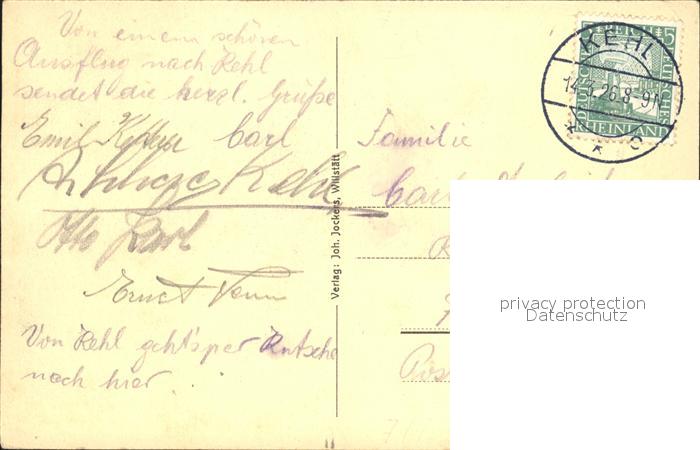 Von einem schönen
Ausflug nach Kehl
sendet die herzl. Grüße
Emil Carl
Kehl
Otto Karl
Ernst
Von Kehl geht's per Rutsche
nach hier.
Verlag: Joh. Jockers, Willstätt
DEUTSCHES REICH 5 5
RHEINLAND
KEHL
14.5.26.8-9N
* * c
Familie
Carl
privacy protection
Datenschutz